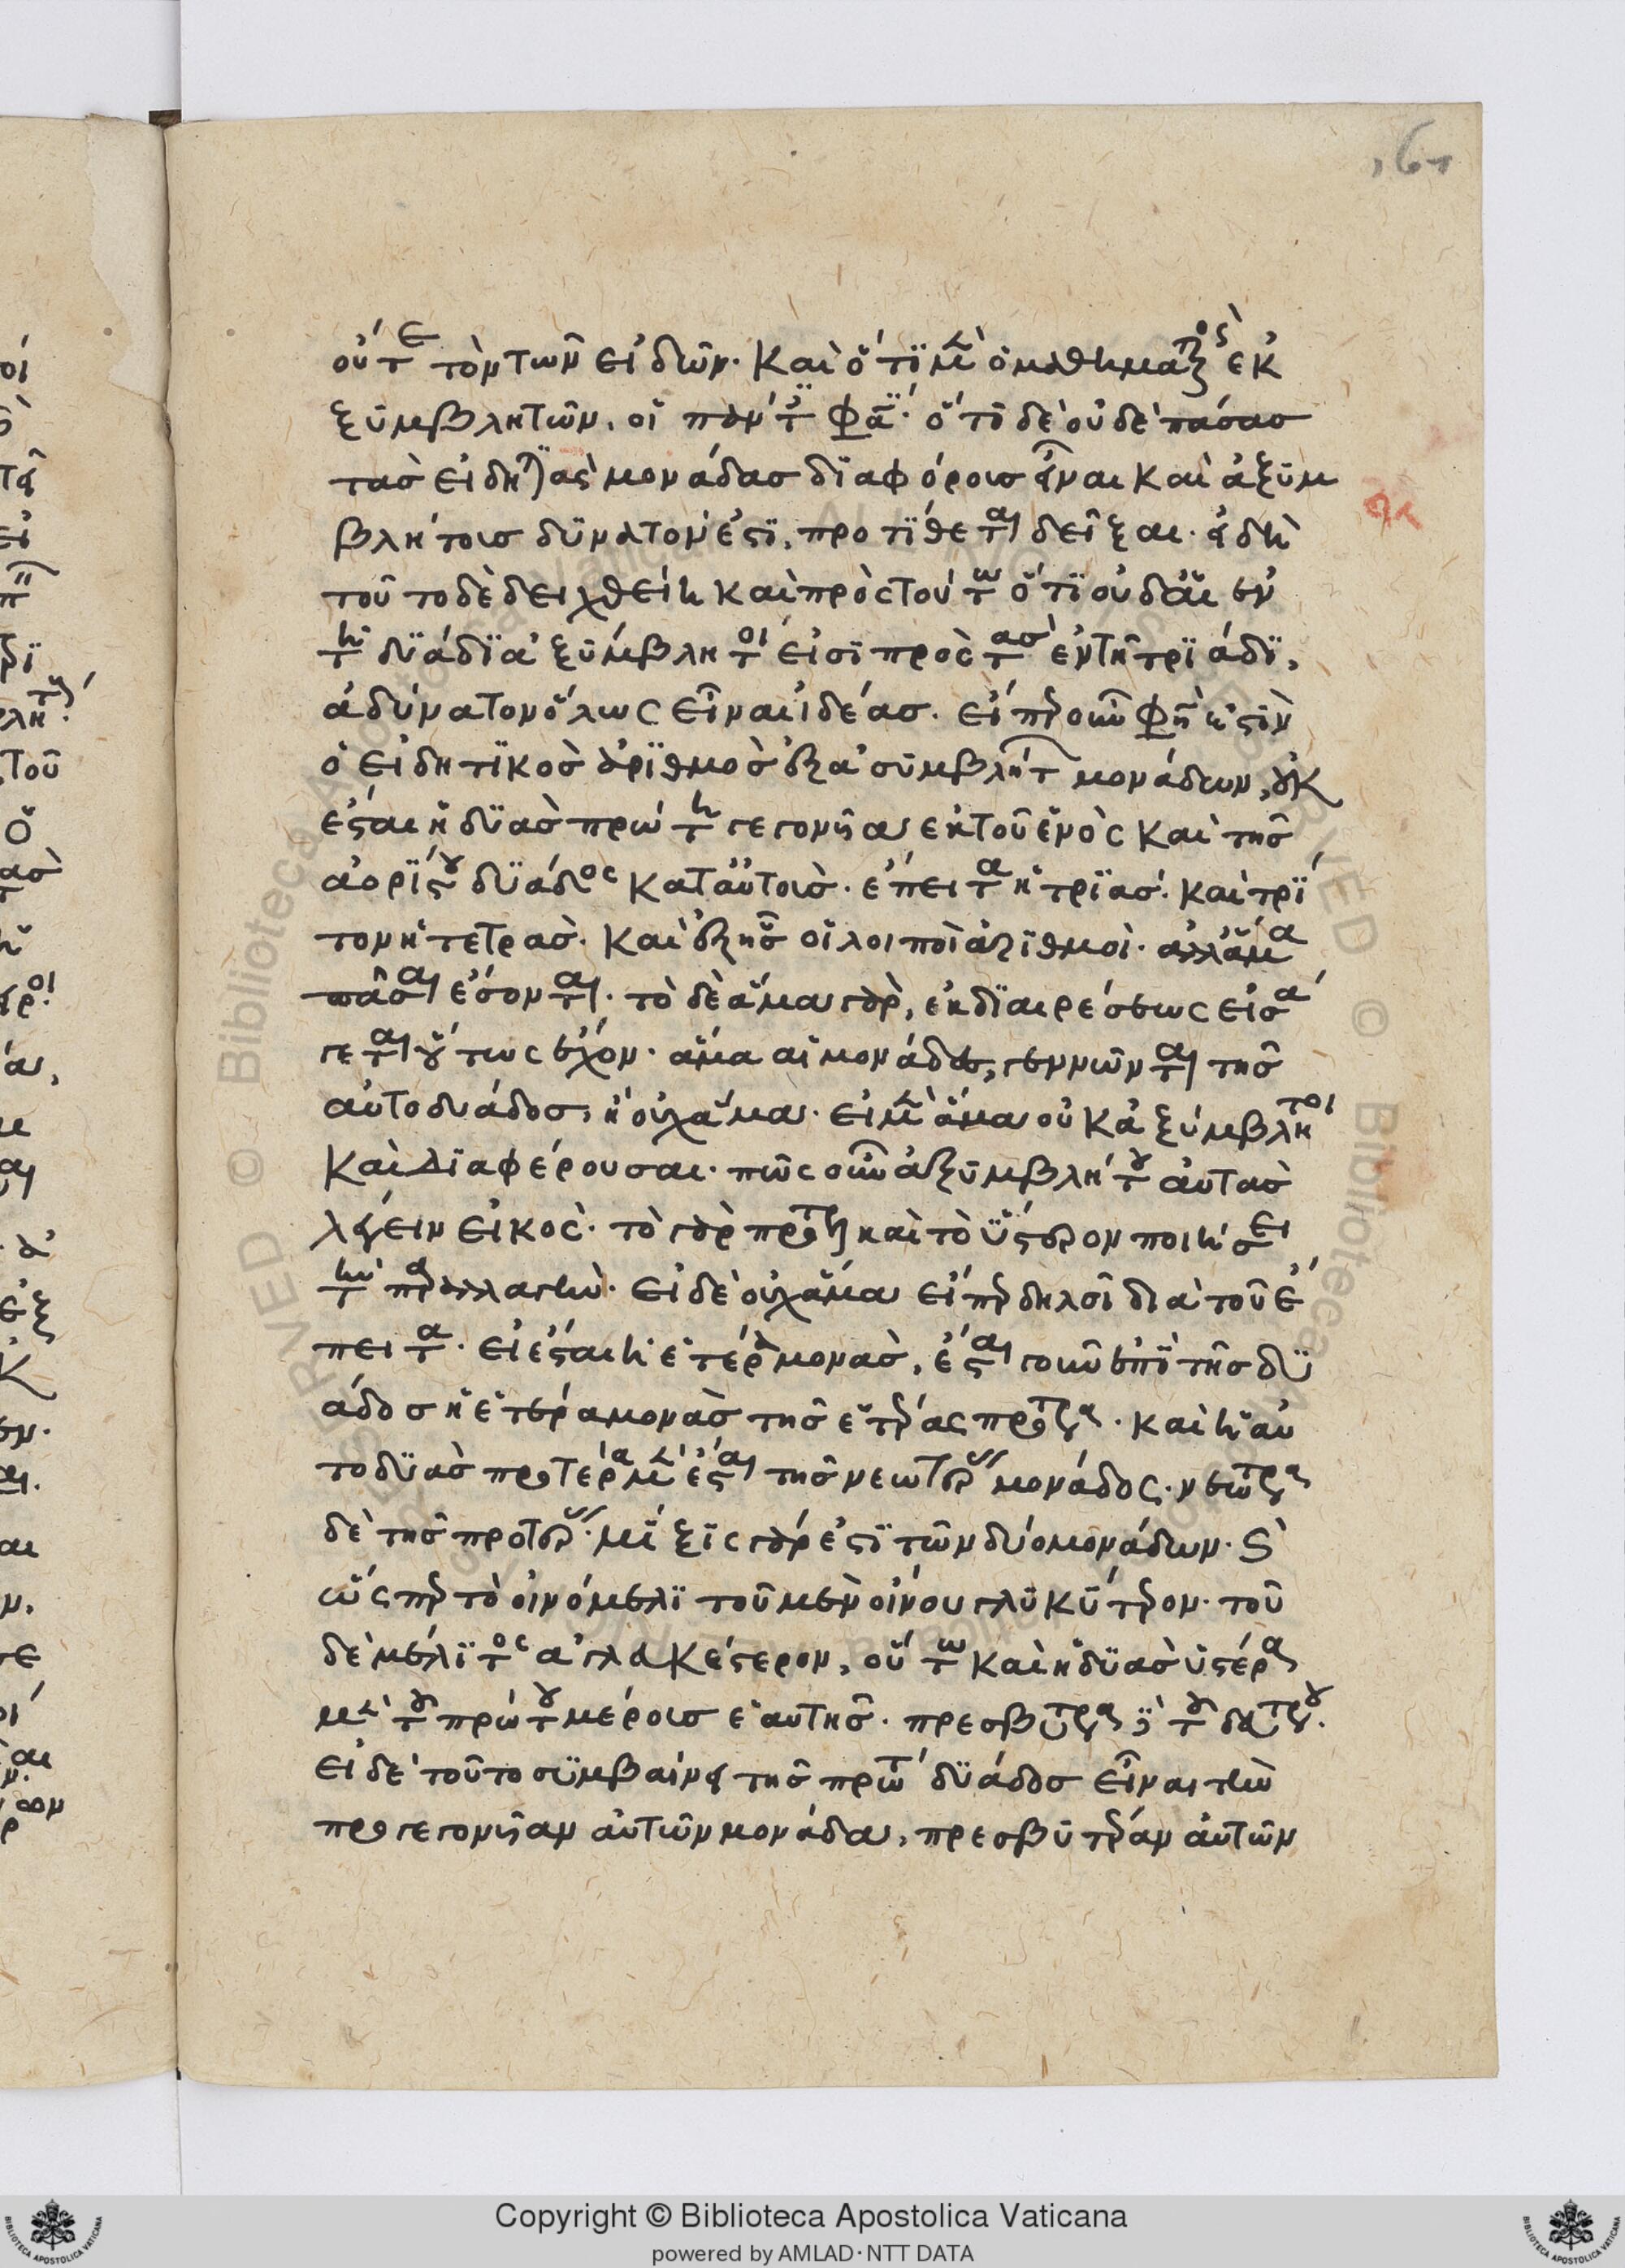 161
οὔτε τὸν τῶν εἰδῶν. καὶ ὅτι μὲν ὁ μαθηματικὸς ἐκ
ξυμβλητῶν. οἱ πάντες φασίν. ὅτι δὲ οὐδὲ πάσας
τὰς εἰδητικὰς μονάδας διαφόροις εἶναι καὶ ἀξυμ
βλήτοις δυνατόν ἐστι, προτίθεται δεῖξαι. εἰ δὴ
τοῦτο δὲ δειχθείη καὶ πρὸς τούτω ὅτι οὐδ' αἱ ἐν
τῇ δυάδι ἀξύμβλητοί εἰσι πρὸς τὰς ἐν τῇ τριάδι,
ἀδύνατον ὅλως εἶναι ἰδέας. εἴπερ οὖν φησιν ἐστὶν
ὁ εἰδητικὸς ἀριθμὸς ἐξ ἀσυμβλήτων μονάδων, οὐκ
ἔσται ἡ δυὰς πρώτη γεγονυῖα ἐκ τοῦ ἑνὸς καὶ τῆς
ἀορίστου δυάδος κατ' αὐτοὺς. ἔπειτα ἡ τριάς. καὶ τρί
τον ἡ τετράς. καὶ ἑξῆς οἱ λοιποὶ ἀριθμοί. ἀλλ' ἅμα
πᾶσαι ἔσονται. τὸ δὲ ἅμα γὰρ, ἐκ διαιρέσεως εἰσά
γεται οὕτως ἔχον. ἅμα αἱ μονάδες, γεννῶνται τῆς
αὐτοδυάδος, ἢ οὐχ ἅμα. εἰ μὲν ἅμα οὐκ ἀξύμβλητοι
καὶ διαφέρουσαι. πῶς οὖν ἀξυμβλήτους αὐτὰς
λέγειν εἰκός. τὸ γὰρ πρότερον καὶ τὸ ὕστερον ποιήσει
τὴν παραλλαγήν. εἰ δὲ οὐχ ἅμα εἴπερ δηλοῖ διὰ τοῦ ἔ
πειτα. εἰ ἔσται ἡ ἑτέρα μονὰς, ἔσται γοῦν ἐπὶ τῆς δυ
άδος ἡ ἑτέρα μονὰς τῆς ἑτέρας προτέρα. καὶ ἡ αὐ
τοδυὰς προτέρα μὲν ἔσται τῆς νεωτέρας μονάδος. νεωτέρα
δὲ τῆς προτέρας. μίξις γάρ ἐστι τῶν δύο μονάδων. καὶ
ὥσπερ τὸ οἰνόμελι τοῦ μὲν οἴνου γλυκύτερον. τοῦ
δὲ μέλιτος ἀγλυκέστερον, οὕτω καὶ ἡ δυὰς ὑστέρα
μὲν τοῦ πρώτου μέρους ἑαυτῆς. πρεσβυτέρα δὲ τοῦ δευτέρου.
εἰ δὲ τοῦτο συμβαίνει τῆς πρώτης δυάδος εἶναι τὴν
προγεγονυῖαν αὐτῶν μονάδα, πρεσβυτέραν αὐτῶν
Copyright © Biblioteca Apostolica Vaticana
powered by AMLAD·NTT DATA